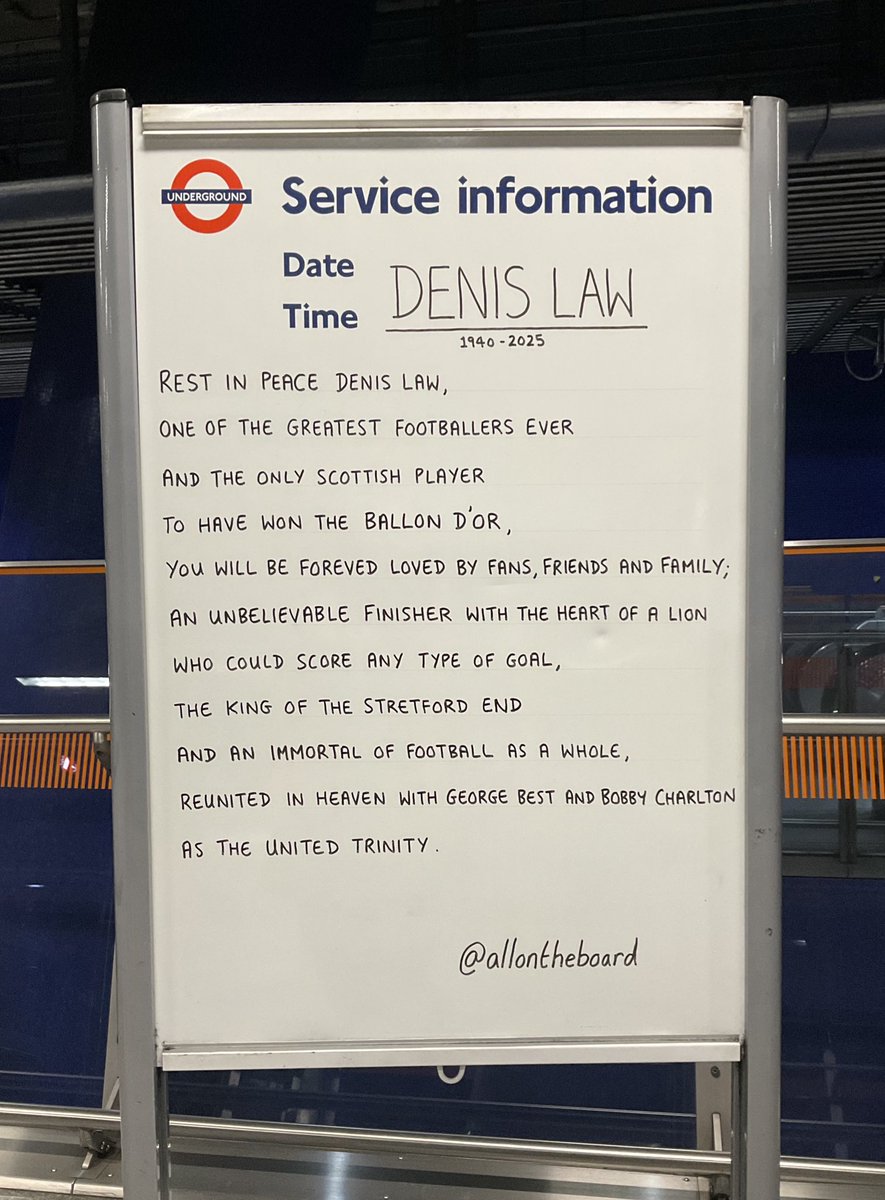 UNDERGROUND
Service information
Date
Time
DENIS LAW
1940-2025
REST IN PEACE DENIS LAW,
ONE OF THE GREATEST FOOTBALLERS EVER
AND THE ONLY SCOTTISH PLAYER
TO HAVE WON THE BALLON D'OR,
YOU WILL BE FOREVED LOVED BY FANS, FRIENDS AND FAMILY;
AN UNBELIEVABLE FINISHER WITH THE HEART OF A LION
WHO COULD SCORE ANY TYPE OF GOAL,
THE KING OF THE STRETFORD END
AND AN IMMORTAL OF FOOTBALL AS A WHOLE,
REUNITED IN HEAVEN WITH GEORGE BEST AND BOBBY CHARLTON
AS THE UNITED TRINITY.
@allontheboard